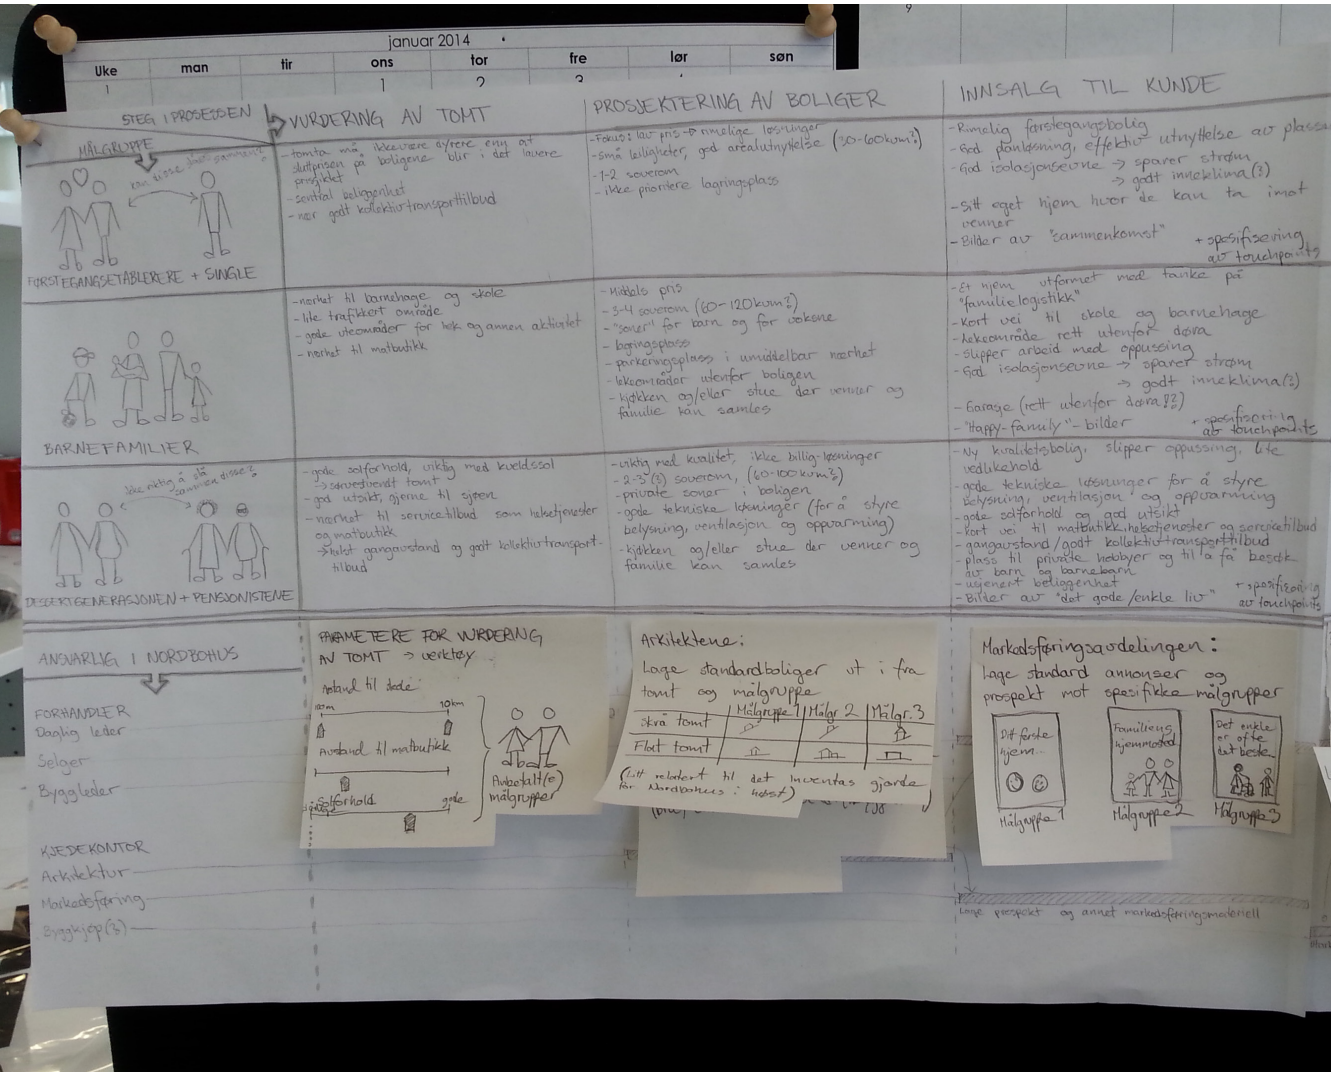 9
januar 2014
Uke man tir ons tor fre lør søn
1 1 2 3
STEG I PROSESSEN
MÅLGRUPPE
VURDERING AV TOMT
PROSJEKTERING AV BOLIGER
INNSALG TIL KUNDE
kan disse slås sammen?
FØRSTEGANGSETABLERERE + SINGLE
- tomta må ikke være dyrere enn at
sluttprisen på boligene blir i det lavere
prissjiktet
- sentral beliggenhet
- nær godt kollektivtransporttilbud
- Fokus: lav pris → rimelige løsninger
- små leiligheter, god arealutnyttelse (30-60kvm?)
- 1-2 soverom
- ikke prioritere lagringsplass
- Rimelig førstegangsbolig
- God planløsning, effektiv utnyttelse av plassen
- God isolasjonsevne → sparer strøm
→ godt inneklima(?)
- Sitt eget hjem hvor de kan ta imot
venner
- Bilder av "sammenkomst"
+ spesifisering
av touchpoints
BARNEFAMILIER
- nærhet til barnehage og skole
- lite trafikkert område
- gode uteområder for lek og annen aktivitet
- nærhet til matbutikk
- Middels pris
- 3-4 soverom (60-120kvm?)
- "soner" for barn og for voksne
- lagringsplass
- parkeringsplass i umiddelbar nærhet
- lekeområder utenfor boligen
- kjøkken og/eller stue der venner og
familie kan samles
- Et hjem utformet med tanke på
"familielogistikk"
- Kort vei til skole og barnehage
- Lekeområde rett utenfor døra
- Slipper arbeid med oppussing
- God isolasjonsevne → sparer strøm
→ godt inneklima(?)
- Garasje (rett utenfor døra??)
- "Happy-family"-bilder
+ spesifisering
av touchpoints
Ikke riktig å slå
sammen disse?
DESSERTGENERASJONEN + PENSJONISTENE
- gode solforhold, viktig med kveldssol
→ sørvestvendt tomt
- god utsikt, gjerne til sjøen
- nærhet til servicetilbud som helsetjenester
og matbutikk
→ helst gangavstand og godt kollektivtransport-
tilbud
- viktig med kvalitet, ikke billig-løsninger
- 2-3(?) soverom, (60-100kvm?)
- private soner i boligen
- gode tekniske løsninger (for å styre
belysning, ventilasjon og oppvarming)
- kjøkken og/eller stue der venner og
familie kan samles
- Ny kvalitetsbolig, slipper oppussing, lite
vedlikehold
- gode tekniske løsninger for å styre
belysning, ventilasjon og oppvarming
- gode solforhold og god utsikt
- kort vei til matbutikk, helsetjenester og servicetilbud
- gangavstand/godt kollektivtransporttilbud
- plass til private hobbyer og til å få besøk
av barn og barnebarn
- usjenert beliggenhet
- Bilder av "det gode/enkle liv"
+ spesifisering
av touchpoints
ANSVARLIG I NORDBOHUS
FORHANDLER
Daglig leder
Selger
Byggleder
KJEDEKONTOR
Arkitektur
Markedsføring
Byggkjøp(?)
PARAMETERE FOR VURDERING
AV TOMT → verktøy
Avstand til skole
10km
Avstand til matbutikk
Solforhold
gode
Anbefalt(e)
målgrupper
Arkitektene:
Lage standardboliger ut i fra
tomt og målgruppe
Målgruppe 1 Målgr 2 Målgr. 3
Skrå tomt
Flat tomt
(Litt relatert til det Inventas gjorde
for Nordbohus i høst)
Markedsføringsavdelingen:
Lage standard annonser og
prospekt mot spesifikke målgrupper
Ditt første
hjem...
Familiens
hjemmested
Det enkle
er ofte
det beste
Målgruppe 1
Målgruppe 2
Målgruppe 3
Lage prospekt og annet markedsføringsmateriell